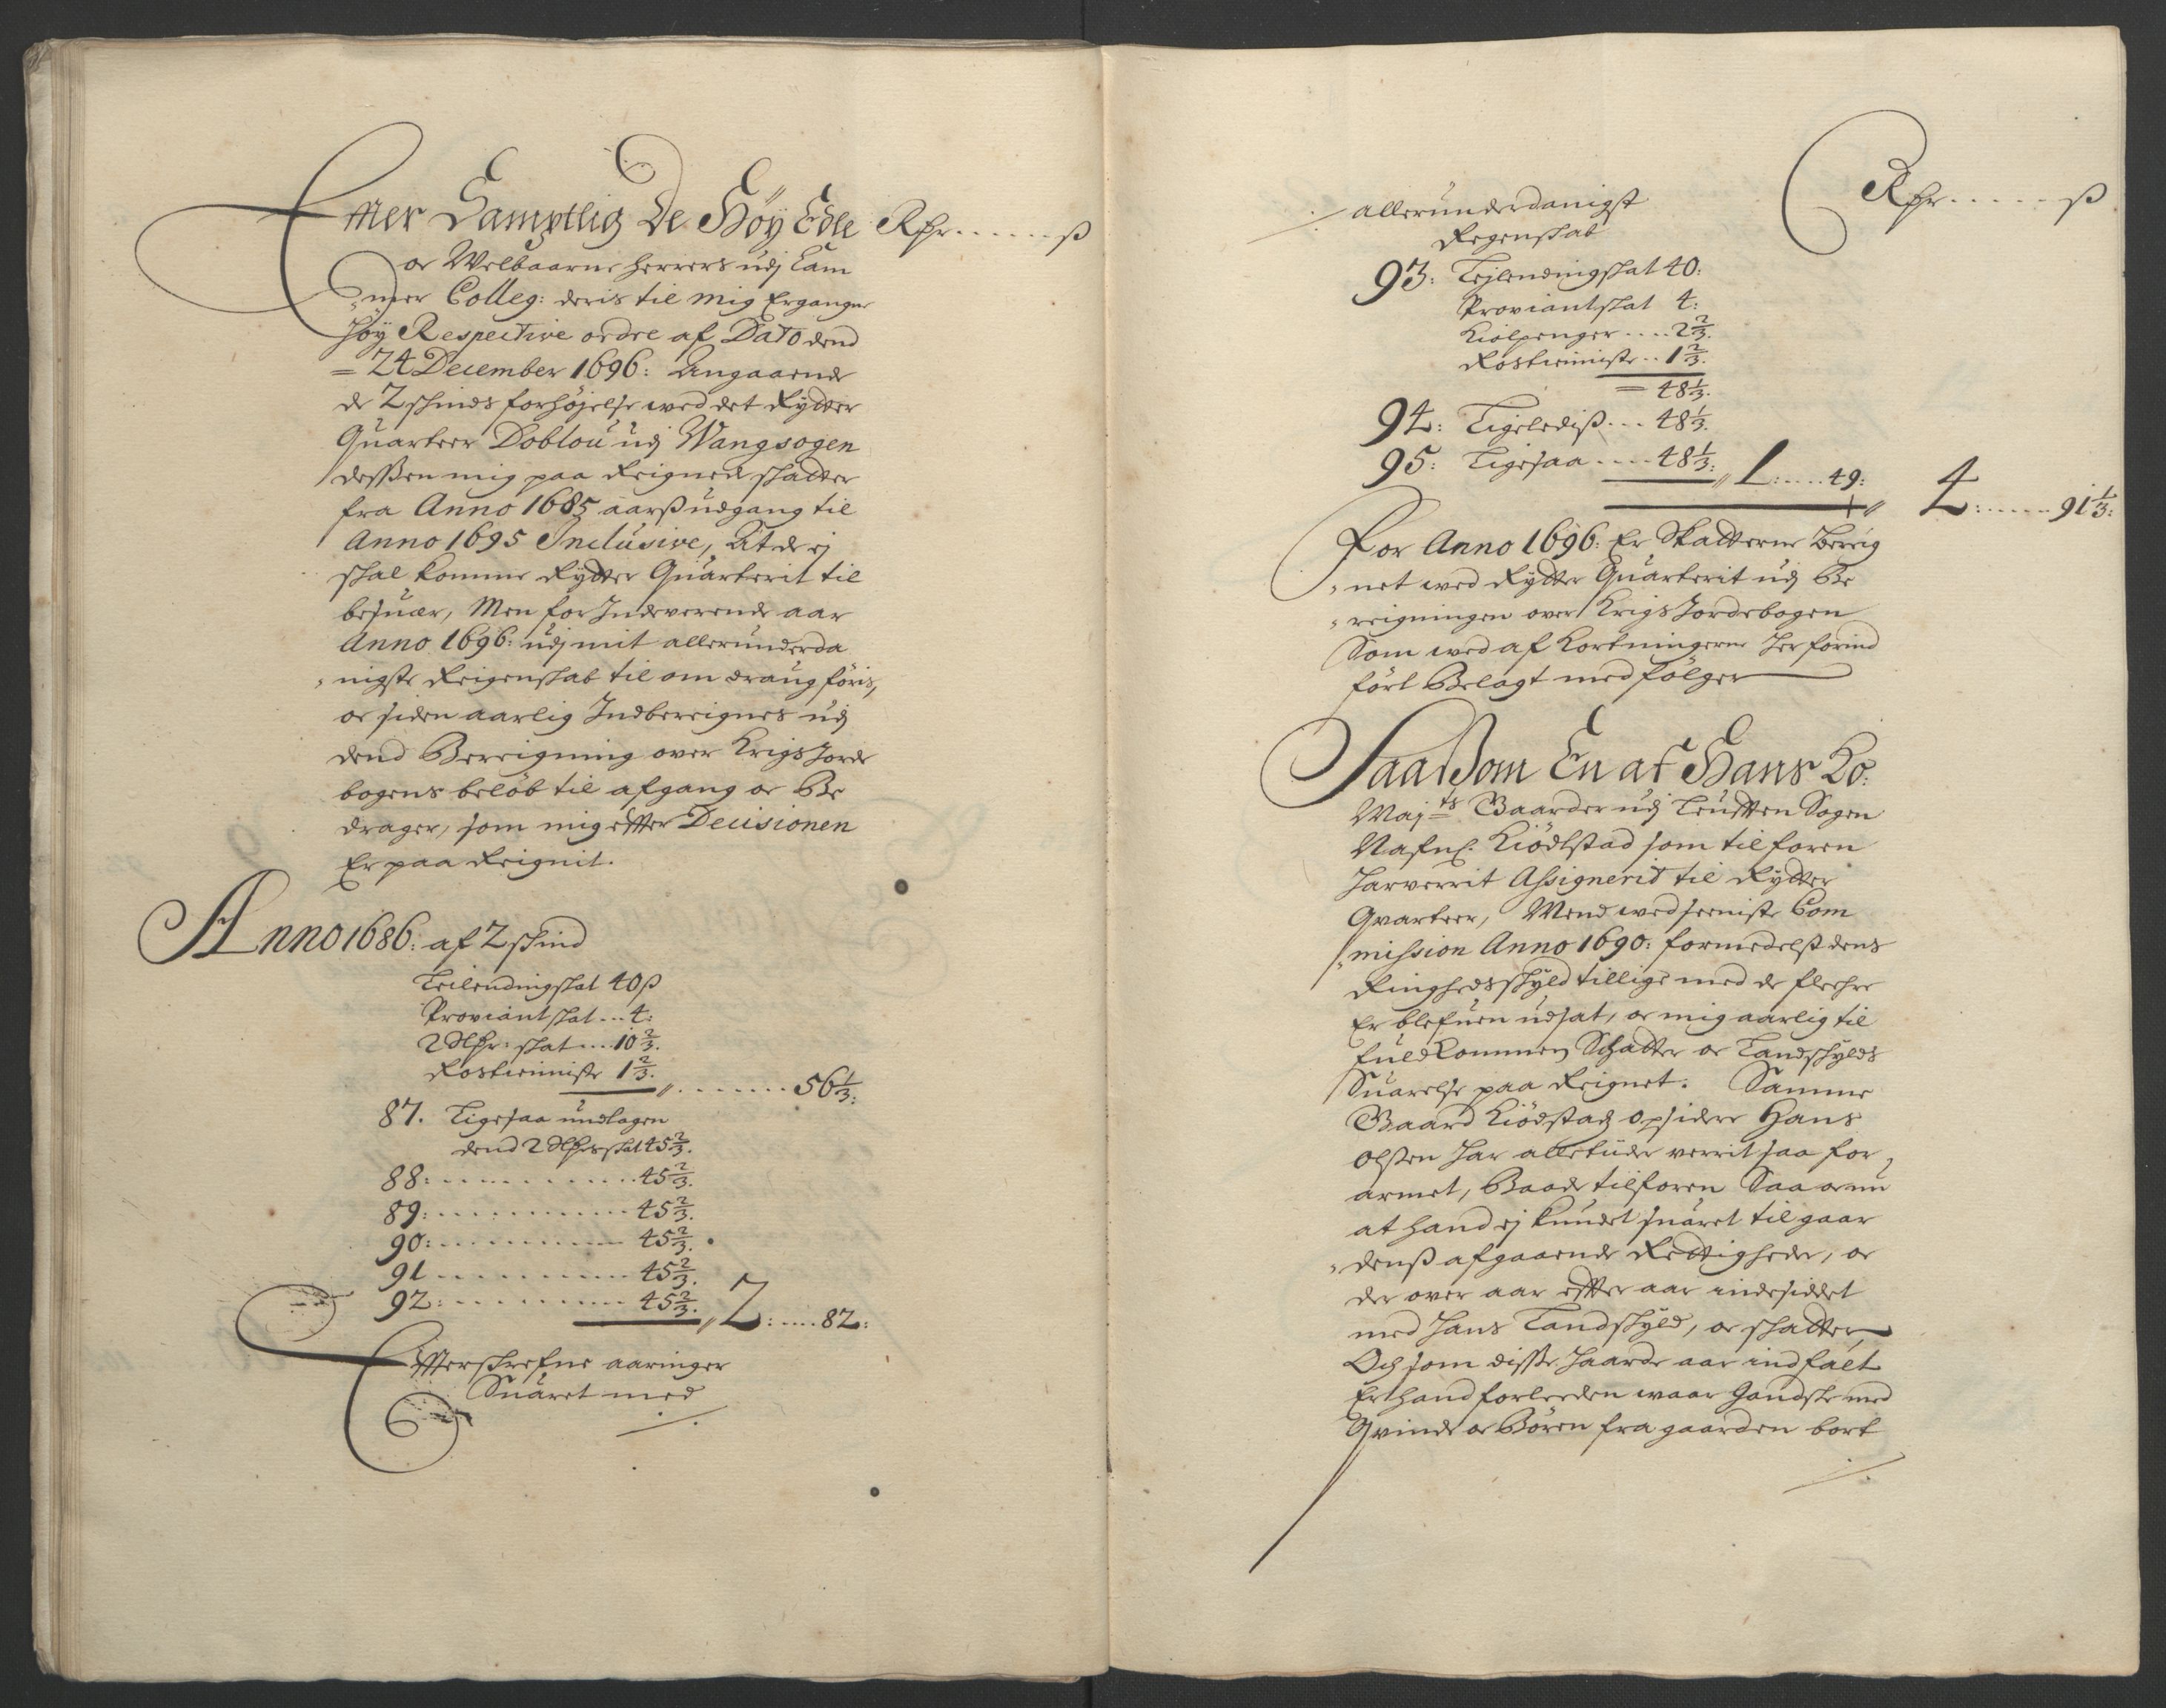 Effter Samptlig De Höy Edle Rdr......ß
oc Welbaarne herrers udj Cam
mer Colleg: deris til mig Ergangne
Höy Respective ordre af Dato dend
24 December 1696: Angaaende
de 2 schinds forhöjelse wed det Rytter
Quarteer Doblou udj Wangsogen
dessen mig paa Reignede schatter
fra Anno 1685 aarß udgang til
Anno 1695 Inclusive, At de ej
schal komme Rytter Quarterit til
besuær, Men for Indeverende aar
Anno 1696: udj mit allerunderda
nigste Reigenschab til omdraug föris,
oc siden aarlig Indbereignes udj
dend Bereigning over Krigs Jorde
bogens belöb til afgang oc Be
drager, som mig effter Decisionen
Er paa Reignit.
Anno 1686: af 2 schind
Leilendingschat 40 ß
Proviantschat... 4:
2 Rdr: schat.... 10 2/3.
Rostieniste 1 2/3.
........ 56 1/3:
87. Ligesaa undtagen
dend 2 Rdrs schat 45 2/3.
88:............45 2/3.
89:............45 2/3.
90:............45 2/3.
91............45 2/3.
92:............45 2/3. 2:....82:
Effterschrefne aaringer
Suaret med
allerunderdanigst Rdr......ß
Regenschab
93: Lejlendingschat 40:
Proviantschat 4:
Kiölpenger.... 2 2/3.
Rostieniste.. 1 2/3.
= 48 1/3.
94: Ligelediß... 48 1/3.
95: Ligesaa.... 48 1/3: 1:....49:
4:......91 1/3:
For Anno 1696: Er Skatterne bereig
net wed Rytter Quarterit udj Be
reigningen over Krigs Jordebogen
Som wed af Kortningerne her forind
fört Belagt med fölger
Saasom En af Hans Ko:
Maj:ts Gaarder udj Leuthen Sogen
Nafnl. Kiödlstad som tilforen
harverrit Assignerit til Rytter
Qvarteer, Mend wed seeniste Com
mission Anno 1690: formedelst dens
Ringheds schyld tillige med de flehre
Er blefuen udsat, oc mig aarlig til
fuldkommen Schatter oc Landschylds
Suarelse paa Reignet. Samme
Gaard Kiödstad opsidere Hans
Olsten har alletiider verrit saa for
armet, Baade tilforen Saa oc nu
at hand ej kundet suaret til gaar
denß afgaaende Rettigheder, oc
der over aar effter aar indesiddet
med hans Landschyld, oc schatter
Och som disse haarde aar indfalt
Er hand forleeden waar gandske med
Qvinde oc Bören fra gaarden bort